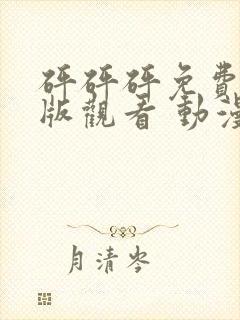 砰砰砰免費
版觀看 動漫
月清岑